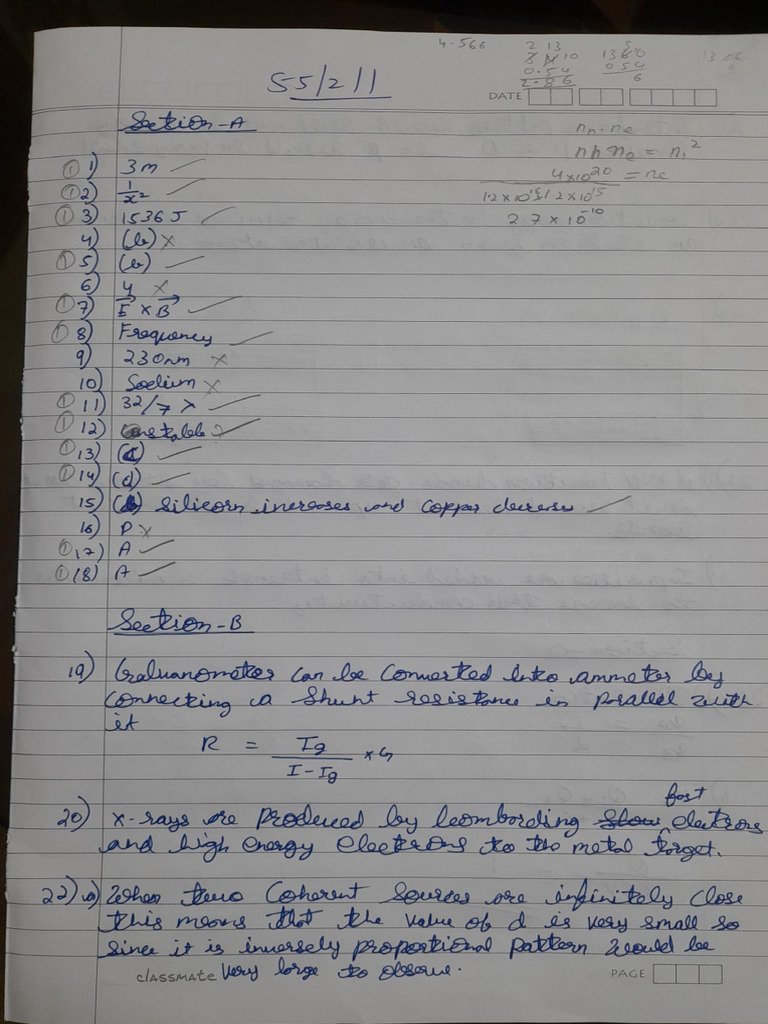 4.566
2 13
8 14 10
0.54
2.86
1360
054
6
13.06
55/2/1
DATE
Section-A
nn. ne
nh ne = ni²
4×10²⁰ = ne
1.2×10¹⁵ 1.2×10¹⁵
2.7×10⁻¹⁰
① 1) 3m ✓
① 2) 1/x² ✓
① 3) 1536J ✓
4) (b) ×
① 5) (b) ✓
6) 4 ×
① 7) E × B ✓
① 8) Frequency ✓
9) 230nm ×
10) Sodium ×
① 11) 32/7 λ ✓
① 12) Unstable ✓
① 13) (c) ✓
① 14) (d) ✓
15) (b) Silicorn increases and copper decrease ✓
16) P ×
① 17) A ✓
① 18) A ✓
Section-B
19) Galvanometer can be converted into ammeter by
connecting a shunt resistance in parallel with
it
R = Ig / I - Ig × G
fast
20) x-rays are produced by bombording slow electrons
and high energy electrons to the metal target.
22) a) When two coherent sources are infinitely close
this means that the value of d is very small so
since it is inversely proportional pattern would be
very large to observe.
classmate
PAGE